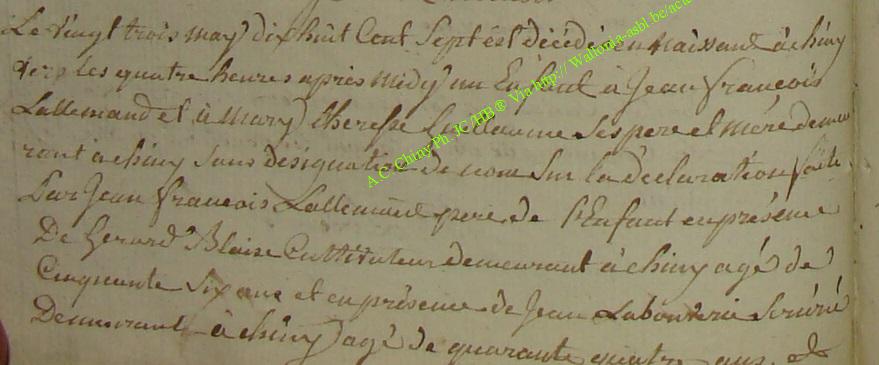 Le vingt trois may dix huit Cent Sept est décédé en naissant à chiny
vers les quatre heures après midy un Enfant à Jean françois
Lallemand et à Mary therese Lallemand Ses pere et mère demeu
rant à chiny Sans désignation de nom Sur la déclaration faite
Par Jean françois Lallemand pere de l'Enfant en présence
De Gerard Blaise Cultivateur demeurant à chiny agé de
Cinquante Six ans et en présence de Jean
Demeurant à chiny agé de quarante quatre ans et
A.C. Chiny Ph. JC /HB ® Via http:// Wallonia-asbl.be/acte